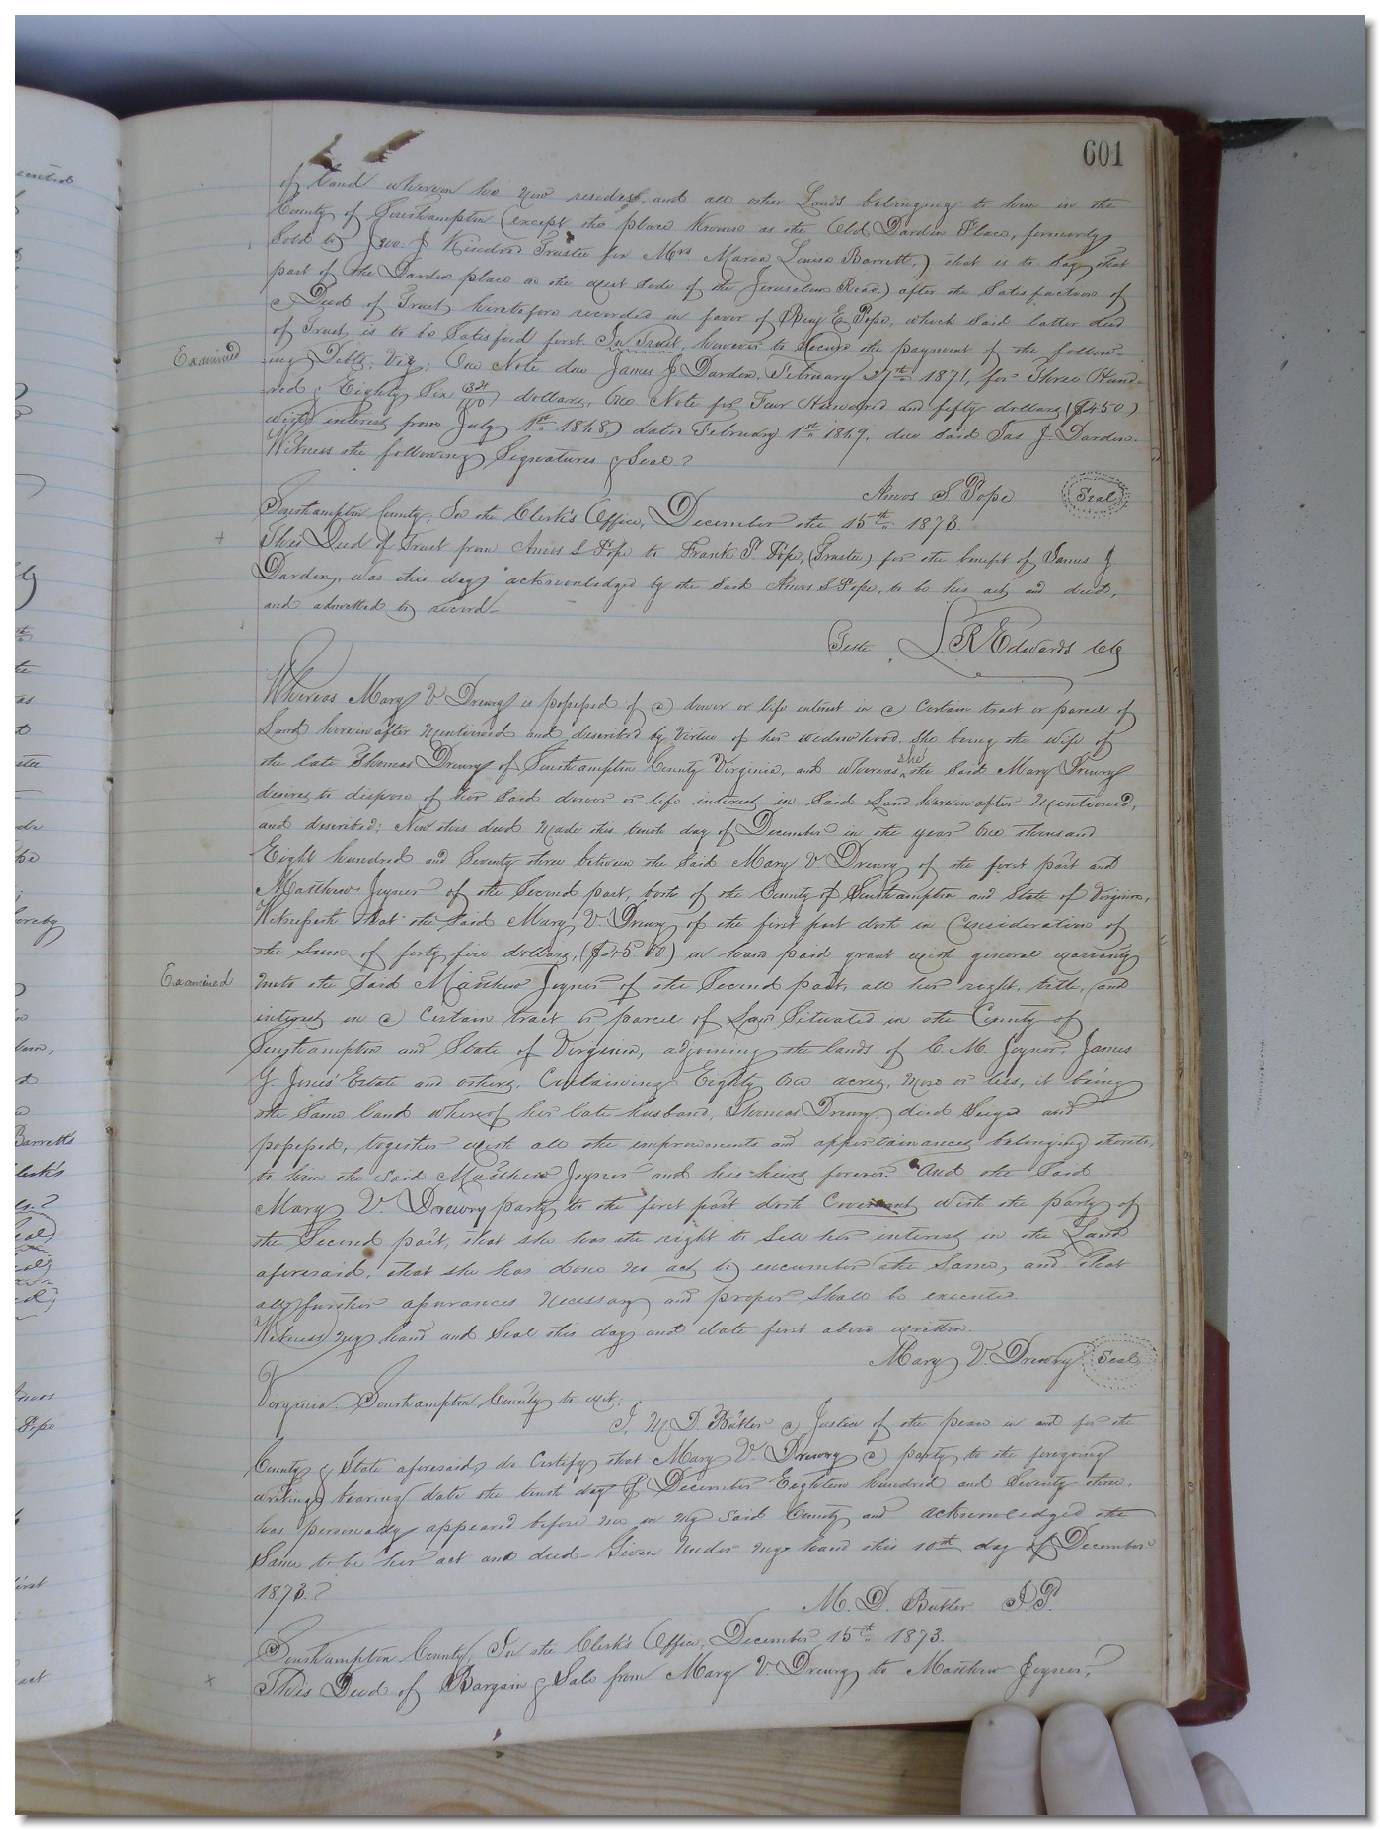 601
of Land whereon he now resides, and all other Lands belonging to him in the
County of Southampton (except the place Known as the Old Darden Place, formerly
Sold by Jno. J Kindred Trustee for Mrs Maria Louisa Barrett,) that is to Say that
part of the Darden place on the West Side of the Jerusalem Road) after the Satisfaction of
a Deed of Trust heretofore recorded in favor of Benj E Pope, which Said latter deed
of Trust is to be Satisfied first. In Trust, however to Secure the payment of the follow-
Examined
ing Debts, Viz; One Note due James J Darden, February 27th 1871, for Three Hund-
red & Eighty Six 34/100 dollars, One Note for Four Hundred and fifty dollars ($450)
with interest from July 1st 1868, dated February 1st 1869, due Said Jas J Darden.
Witness the following Signatures & Seal
Amos S. Pope Seal
Southampton County; In the Clerk's Office, December the 15th 1873.
+
This Deed of Trust from Amos S Pope to Frank P. Pope, (Trustee) for the benefit of James J
Darden, was this day acknowledged by the Said Amos S Pope, to be his act and deed,
and admitted to record-
Teste L. R Edwards Clk
Whereas Mary V Drewry is possessed of a dower or life interest in a Certain tract or parcel of
Land herein after mentioned and described by Virtue of her widowhood. She being the wife of
the late Thomas Drewry of Southampton County Virginia, and whereas she the Said Mary Drewry
desires to dispose of her Said dower or life interest in Said Land herein after Mentioned,
and described; Now this deed Made this tenth day of December in the year One thousand
Eight hundred and Seventy three between the Said Mary V. Drewry of the first part and
Matthew Joyner of the Second part, both of the County of Southampton and State of Virginia,
Witnesseth that the Said Mary V. Drewry of the first part doth in Consideration of
the Sum of forty five dollars, ($45.00) in hand paid grant with general warranty
Examined
unto the Said Matthew Joyner of the Second part, all her right, title, and
interest in a Certain tract or parcel of Land Situated in the County of
Southampton and State of Virginia, adjoining the lands of C. M. Joyner, James
G. Jones' Estate and others, Containing Eighty One acres, More or less, it being
the Same land whereof her late husband, Thomas Drewry died Seized and
possessed, together with all the improvements and appurtainances belonging thereto,
to him the said Matthew Joyner and his heirs forever. And the Said
Mary V. Drewry party to the first part doth Covenant with the party of
the Second part, that she has the right to Sell her interest in the Land
aforesaid, that she has done no act to encumber the Same, and that
all further assurances Necessary and proper Shall be executed.
Witness my hand and Seal this day and date first above written.
Mary V. Drewry Seal
Virginia. Southampton County to wit;
I, M. D. Butler a Justice of the peace in and for the
County & State aforesaid, do Certify that Mary V. Drewry a party to the foregoing
writing bearing date the tenth day of December Eighteen hundred and Seventy three.
has personally appeared before me in my Said County and acknowledged the
Same to be her act and deed- Given Under my hand this 10th day of December
1873.
M. D. Butler J.P.
Southampton County, In the Clerk's Office, December 15th 1873.
+
This Deed of Bargain & Sale from Mary V Drewry to Matthew Joyner,